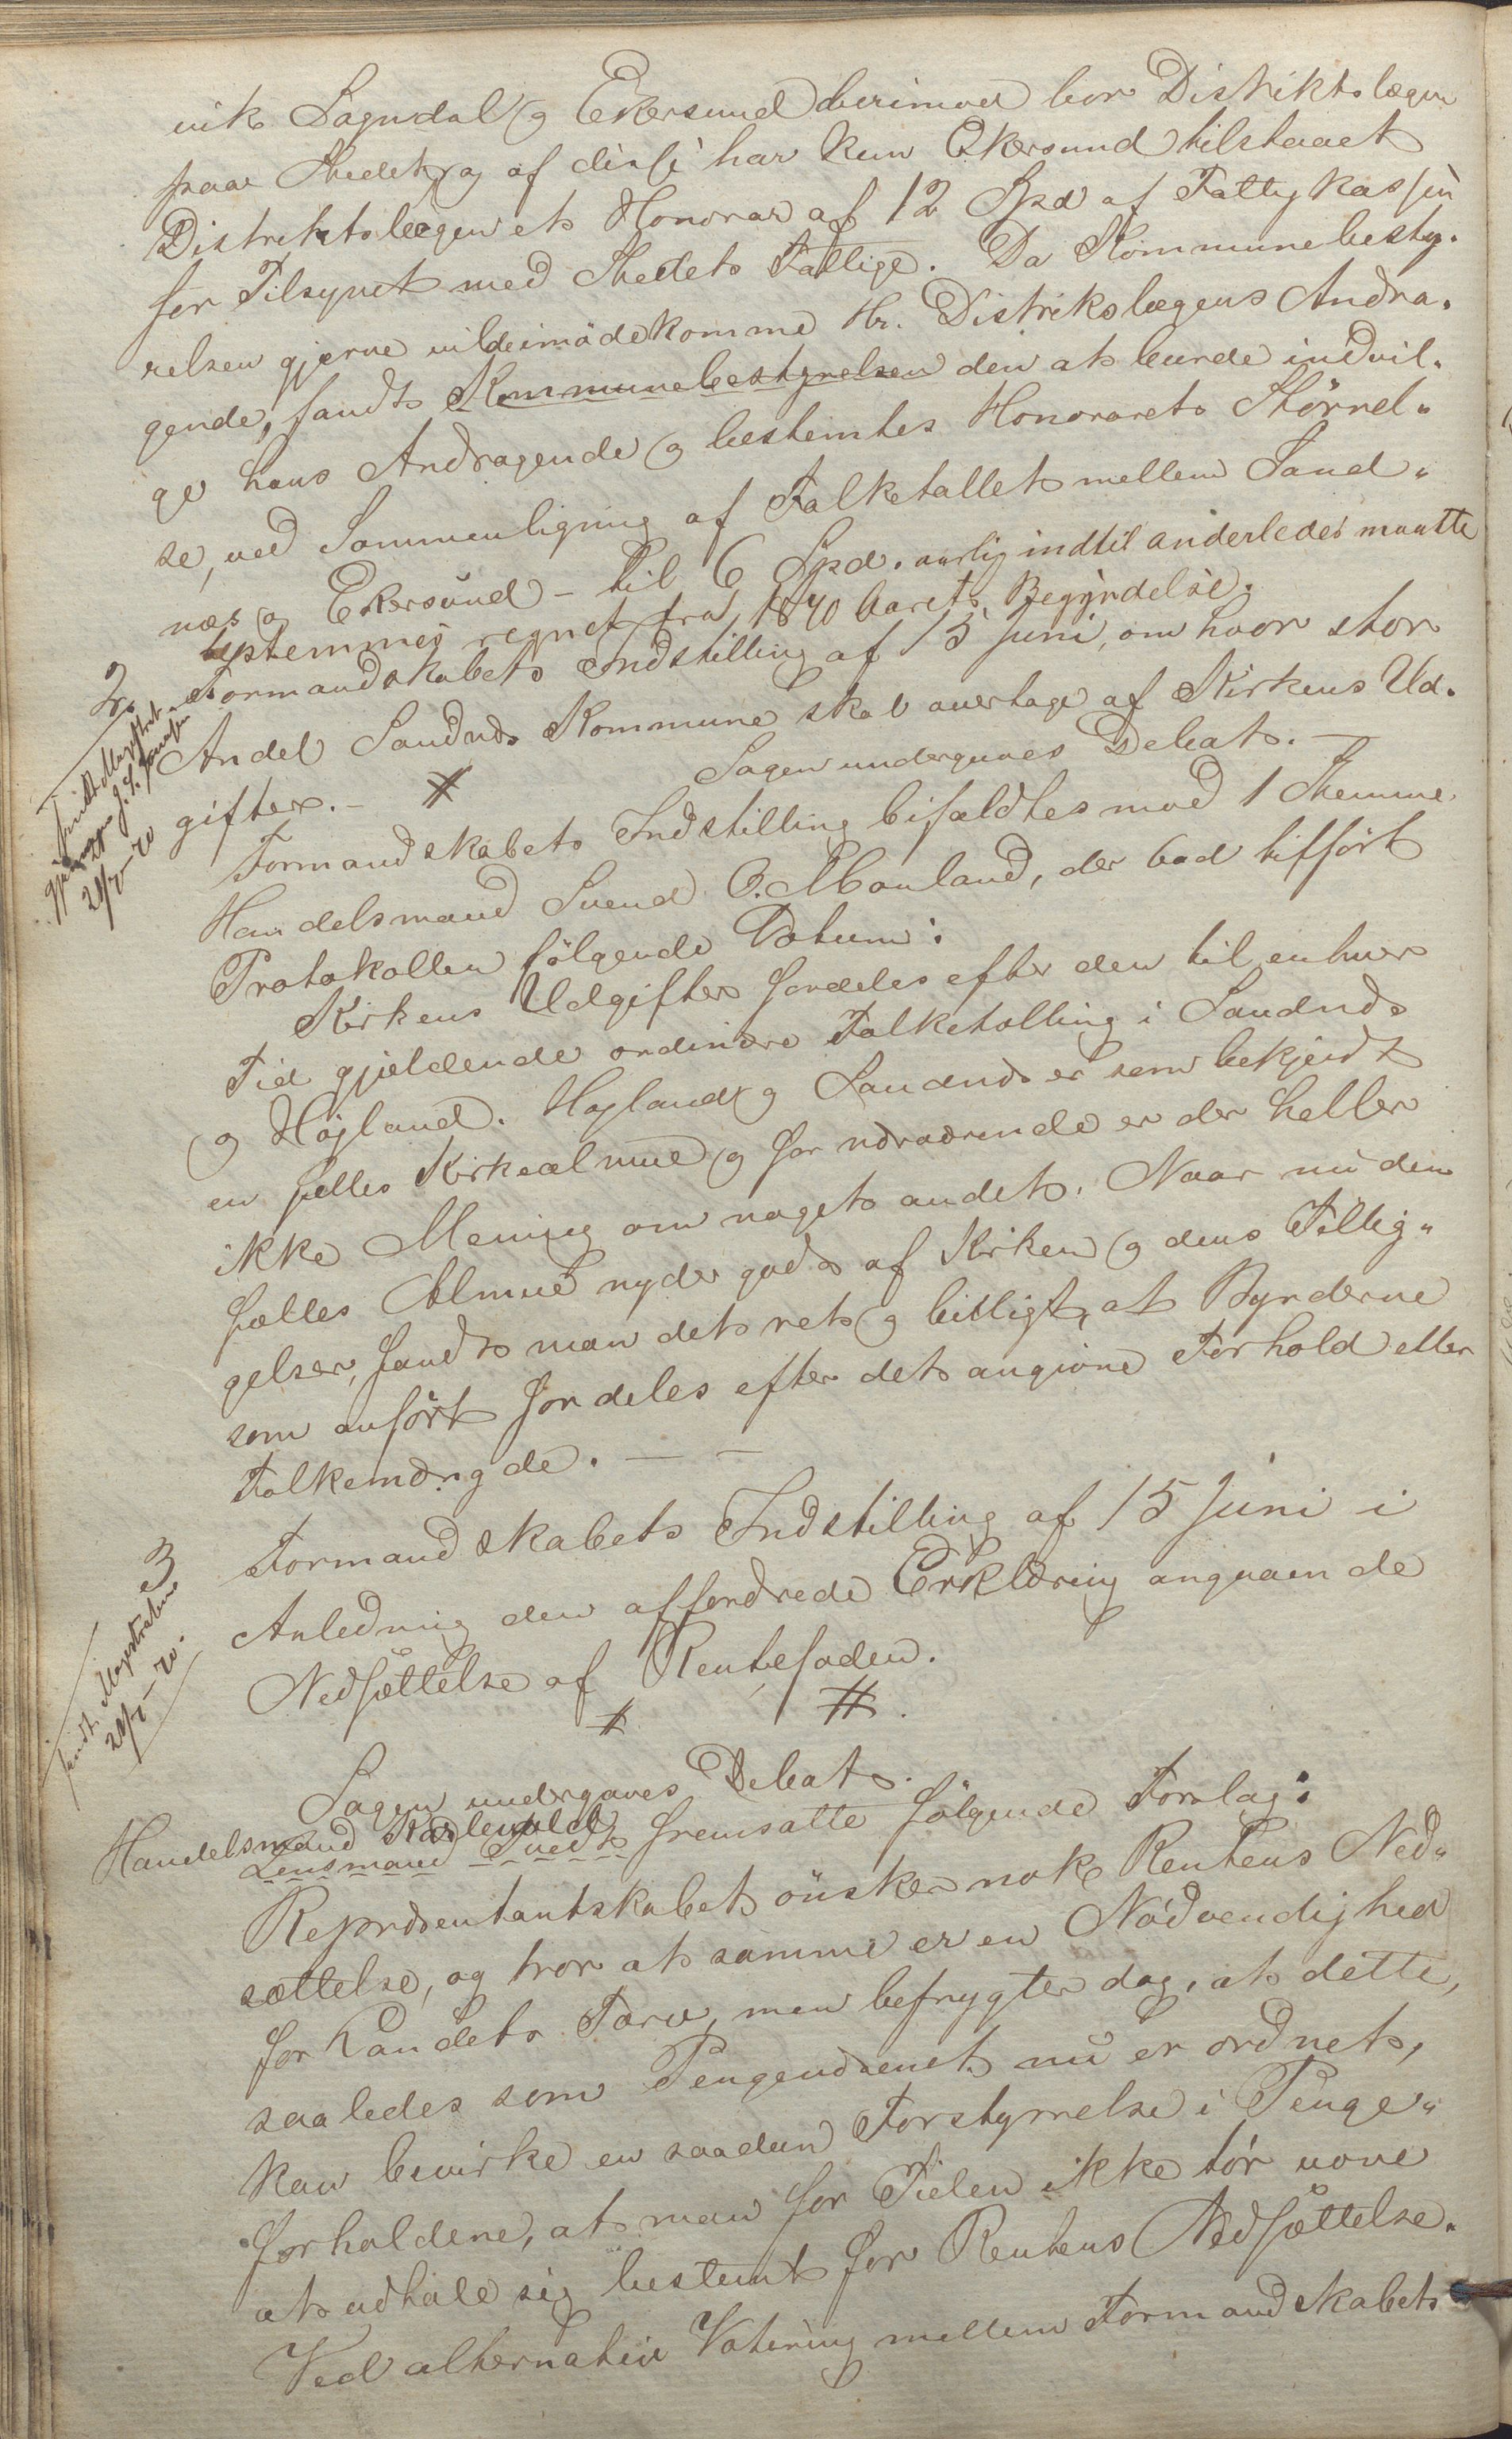 vik Sogndal og Ekersund derimod bor Distriktslægen
paa Stedet, og af disse har kun Ekersund tilstaaet
Distriktslægen et Honorar af 12 Spd af Fattigkassen
for Tilsynet med Stedets Fattige. Da Kommunebesty-
relsen gjerne vilde imødekomme Hr. Distrikslægens Andra-
gende, fandt Kommunebestyrelsen den at burde indvil-
ge hans Andragende og bestemtes Honorarets Størrel-
se, ved Sammenligning af Folketallet mellem Sand-
næs og Ekersund – til 6 Spd. aarlig indtil anderledes maatte
bestemmes regnet fra 1870 Aarets Begyndelse.
2. Formandskabets Indstilling af 15 Juni, om hvor stor
Andel Sandnæs Kommune skal overtage af Kirkens Ud-
gifter. – #
Sagen undergaves Debat. –
sendt Magistrat
gjennem J. S.
21/7–70
Formandskabets Indstilling bifaldtes mod 1 Stemme
Handelsmand Svend O. Mauland, der bad tilført
Protokollen følgende Votum:
Kirkens Udgifter fordeles efter den til enhver
Tid gjældende ordinære Folketælling i Sandnæs
og Højland. Højland og Sandnæs er som bekjendt
en fælles Kirkealmue og for nærværende er der heller
ikke Mening om noget andet. Naar nu den
fælles Almue nyder godt af Kirken og dens Tillig-
gelser, fandt man det ret og billigt, at Byrderne
som anført fordeles efter det angivne Forhold eller
Folkemængde. – –
3 Formandskabets Indstilling af 15 Juni i
Anledning den affordrede Erklæring angaaende
Nedsættelse af Rentefoden.
sendt Magistraten
21/7–70.
# #.
Sagen undergaves Debat.
Handelsmand
Lensmand Tvedt fremsatte følgende Forslag:
Repræsentantskabet ønsker nok Rentens Ned-
sættelse, og tror at samme er en Nødvendighed
for Landets Tarv, men befrygter dog, at dette,
saaledes som Pengevæsenet nu er ordnet,
kan bevirke en saadan Forstyrrelse i Penge-
forholdene, at man for Tiden ikke tør vove
at udtale sig bestemt for Rentens Nedsættelse.
Ved alternativ Votering mellem Formandskabets